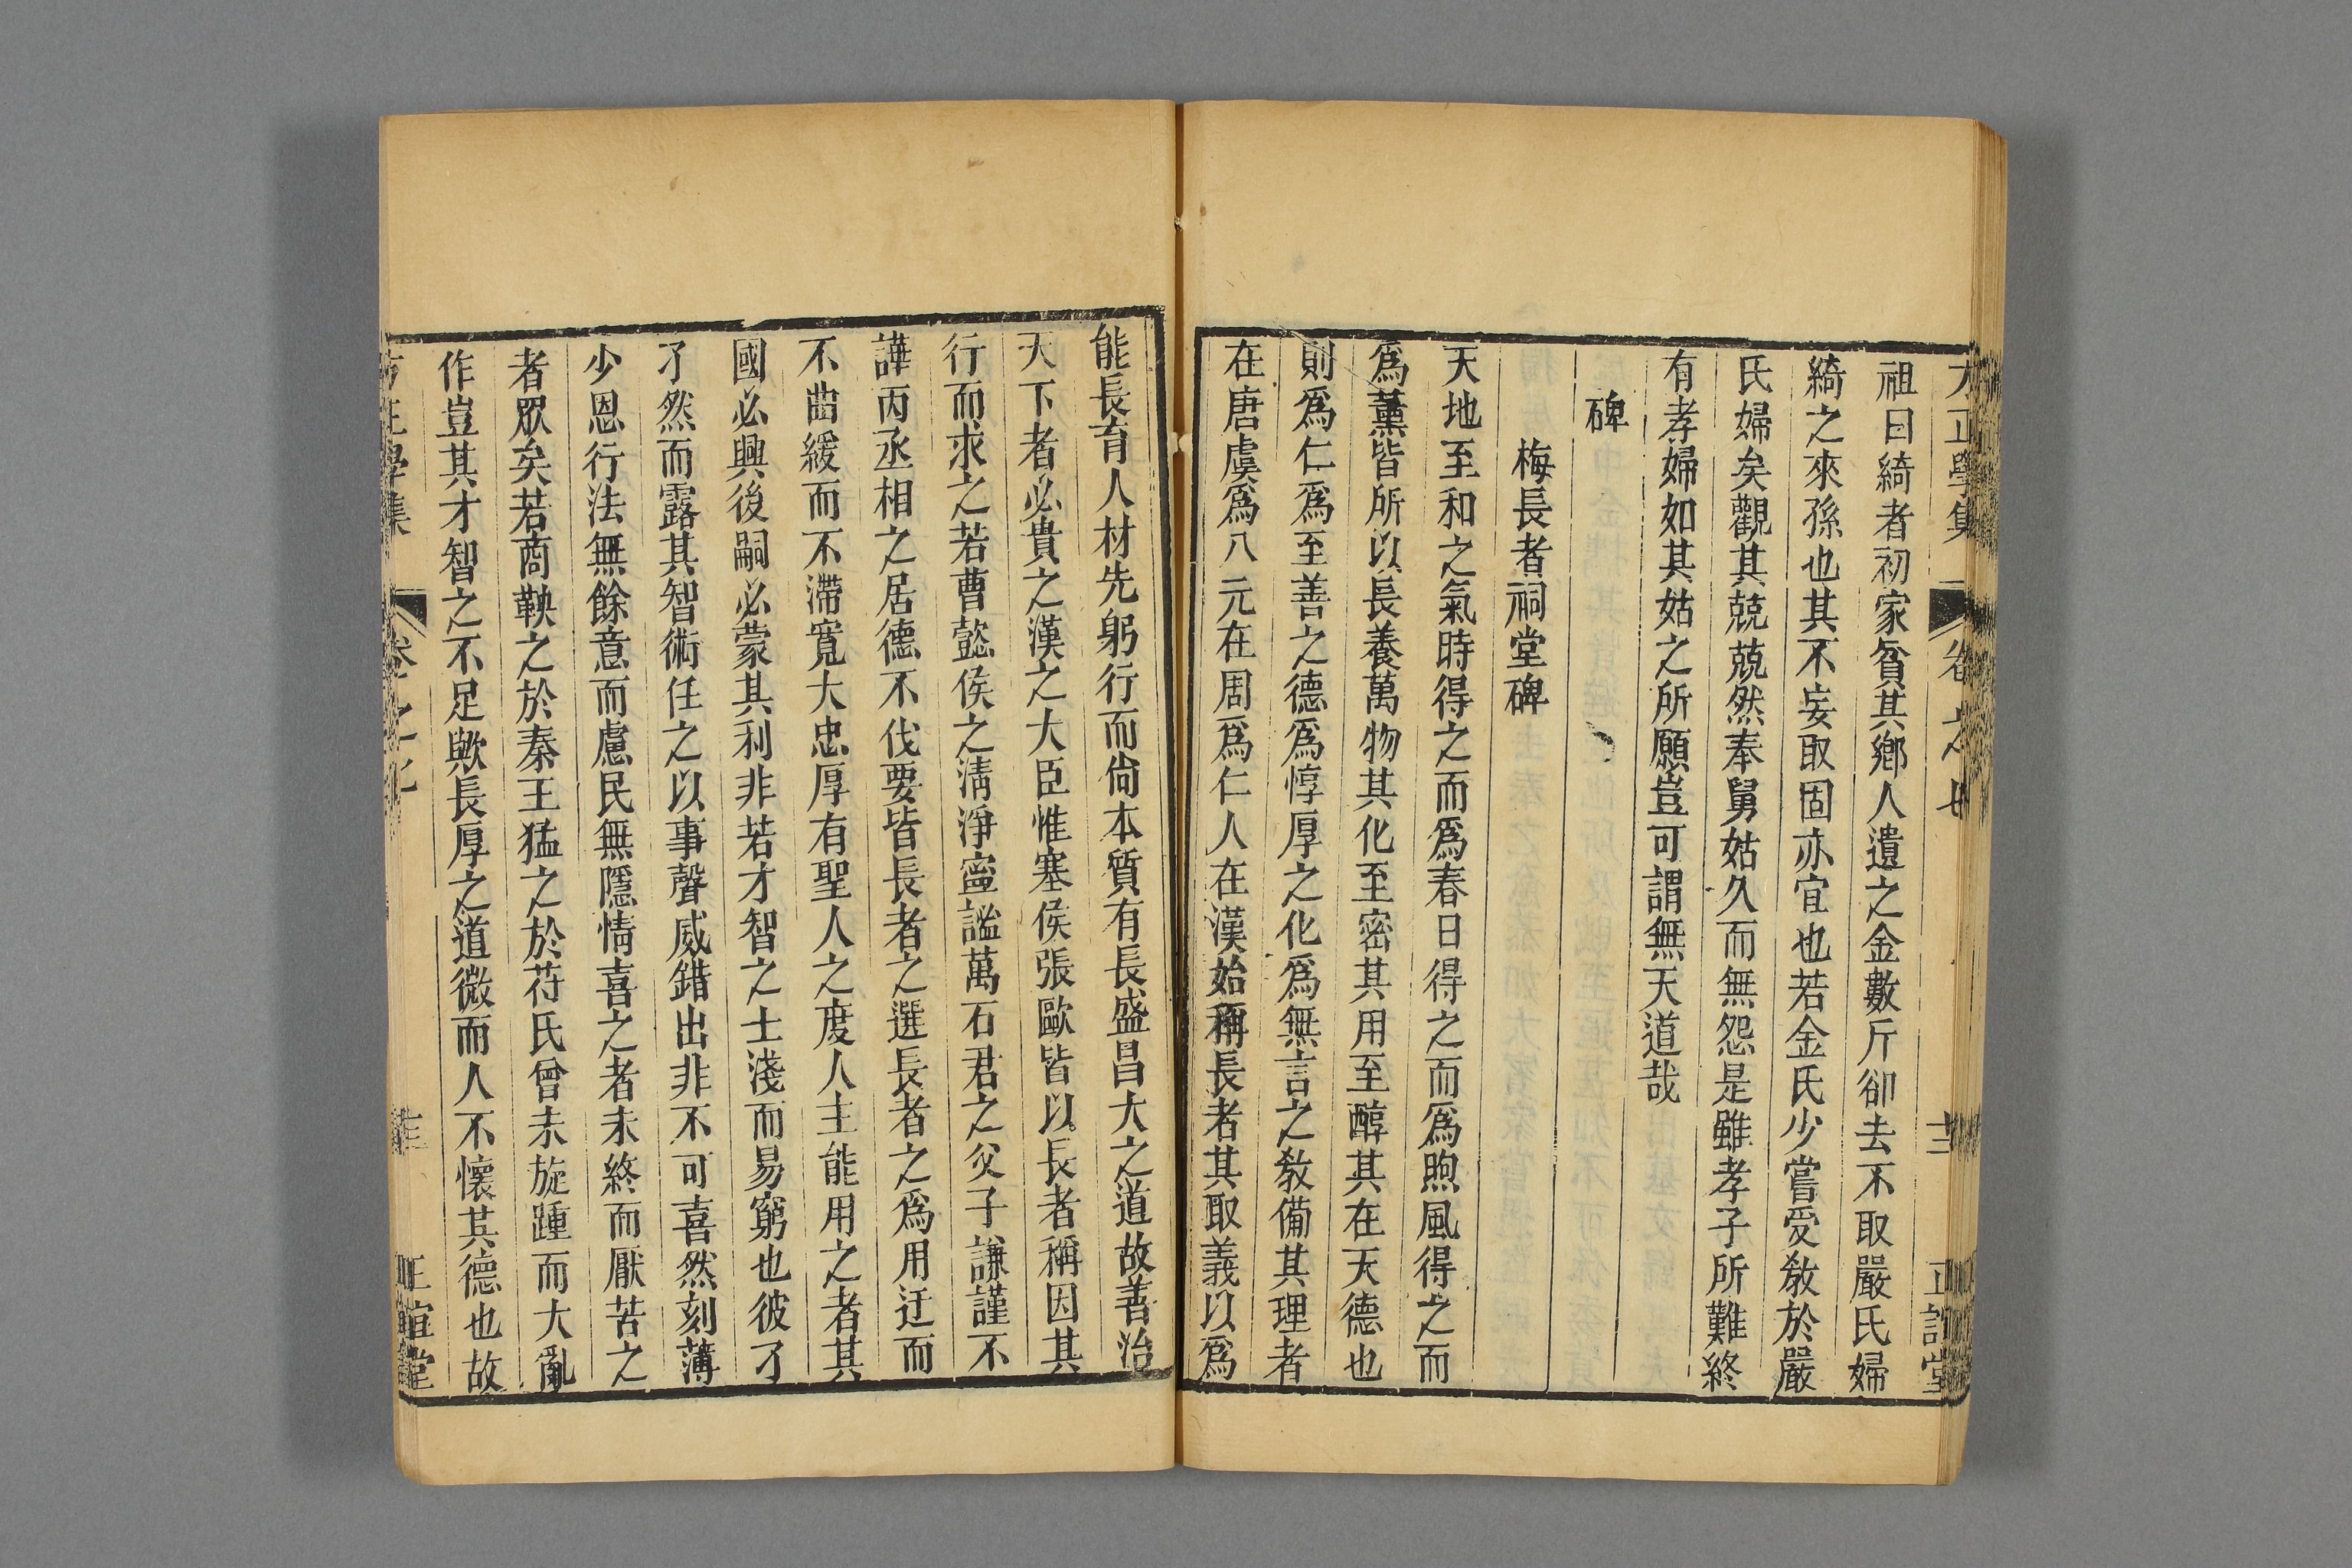 方正學集 卷之七 十二 正誼堂
祖曰綺者初家貧其鄉人遺之金數斤卻去不取嚴氏婦
綺之來孫也其不妄取固亦宜也若金氏少嘗受敎於嚴
氏婦矣觀其兢兢然奉舅姑久而無怨是雖孝子所難終
有孝婦如其姑之所願豈可謂無天道哉
碑
梅長者祠堂碑
天地至和之氣時得之而爲春日得之而爲煦風得之而
爲薰皆所以長養萬物其化至密其用至醇其在天德也
則爲仁爲至善之德爲惇厚之化爲無言之敎備其理者
在唐虞爲八元在周爲仁人在漢始稱長者其取義以爲
能長育人材先躬行而尙本質有長盛昌大之道故善治
天下者必貴之漢之大臣惟塞侯張歐皆以長者稱因其
行而求之若曹懿侯之淸淨寍謐萬石君之父子謙謹不
譁丙丞相之居德不伐要皆長者之選長者之爲用迂而
不曲緩而不滯寬大忠厚有聖人之度人主能用之者其
國必興後嗣必蒙其利非若才智之士淺而易窮也彼孑
孑然而露其智術任之以事聲威錯出非不可喜然刻薄
少恩行法無餘意而慮民無隱情喜之者未終而厭苦之
者眾矣若商鞅之於秦王猛之於苻氏曾未旋踵而大亂
作豈其才智之不足歟長厚之道微而人不懷其德也故
方正學集 卷之七 正誼堂